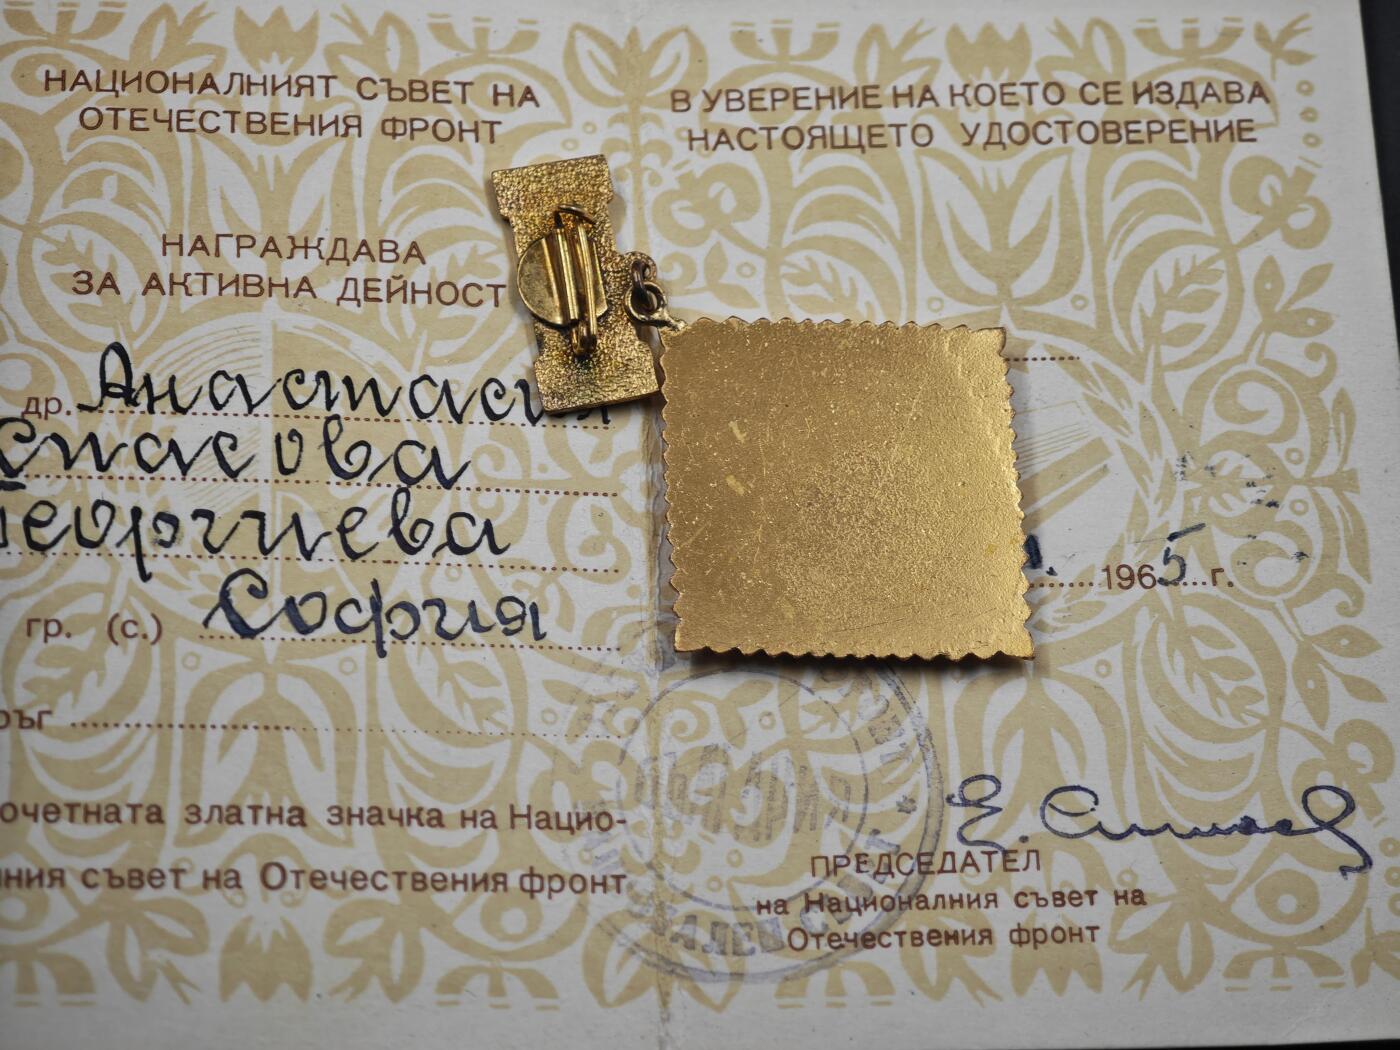 НАЦИОНАЛНИЯТ СЪВЕТ НА
ОТЕЧЕСТВЕНИЯ ФРОНТ
НАГРАЖДАВА
ЗА АКТИВНА ДЕЙНОСТ
др. Анастасия
Спасова
Георгиева
гр. (с.) София
ръг
очетната златна значка на Нацио-
ния съвет на Отечествения фронт
В УВЕРЕНИЕ НА КОЕТО СЕ ИЗДАВА
НАСТОЯЩЕТО УДОСТОВЕРЕНИЕ
1965 г.
БЪЛГАРИЯ
ПРЕДСЕДАТЕЛ
на Националния съвет на
Отечествения фронт